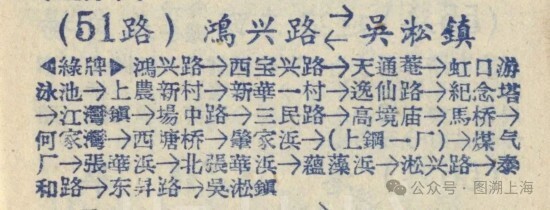 (51路) 鴻兴路⇄吳淞鎮
◁綠牌▷鴻兴路→西宝兴路→天通菴→虹口游
泳池→上農新村→新華一村→逸仙路→紀念塔
→江灣鎮→場中路→三民路→高境庙→馬桥→
何家灣→西塘桥→肇家浜→(上鋼一厂)→煤气
厂→張華浜→北張華浜→蘊藻浜→淞兴路→泰
和路→东昇路→吳淞鎮
公众号·图溯上海